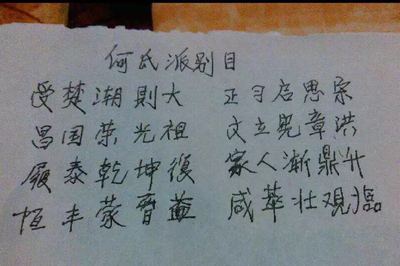 何氏派别目
受楚潮則大 正习启思宗
昌国荣光祖 文立宪章洪
履泰乾坤復 家人渐鼎升
恒丰蒙晋益 咸萃壮观临